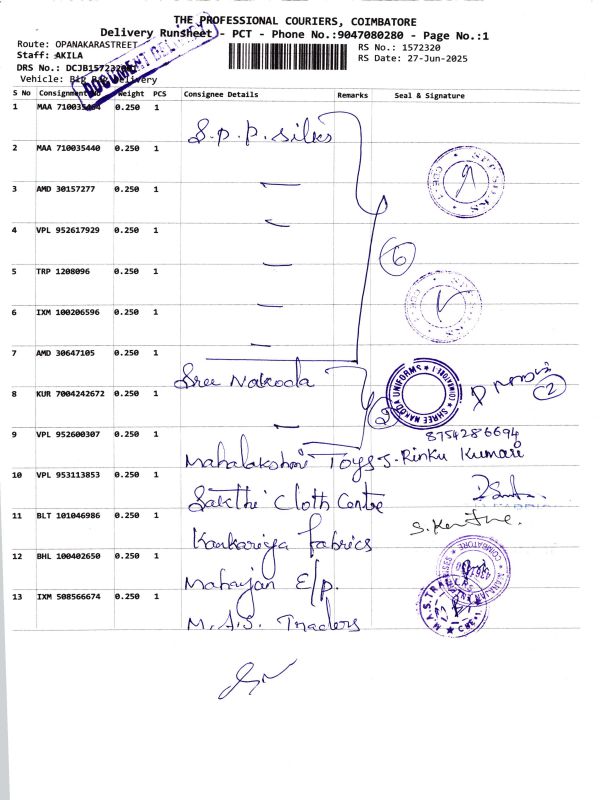 THE PROFESSIONAL COURIERS, COIMBATORE
Delivery Runsheet - PCT - Phone No.:9047080280 - Page No.:1
Route: OPANAKARASTREET
RS No.: 1572320
Staff: AKILA
RS Date: 27-Jun-2025
DRS No.: DCJB1572320
Vehicle: Delivery
DOCUMENT DELIVERY
S No Consignment No Weight PCS Consignee Details Remarks Seal & Signature
1 MAA 710035464 0.250 1 S.p.p. silks
2 MAA 710035440 0.250 1 —
3 AMD 30157277 0.250 1 —
4 VPL 952617929 0.250 1 —
6
5 TRP 1208096 0.250 1 —
6 IXM 100206596 0.250 1 —
7 AMD 30647105 0.250 1 Sree Nakoda
SHREE NAKODA UNIFORMS
2
8 KUR 7004242672 0.250 1 —
2
8754286694
9 VPL 952600307 0.250 1 Mahalakshmi Toys J. Rinku Kumari
10 VPL 953113853 0.250 1 Sakthi Cloth Centre
11 BLT 101046986 0.250 1 Kankariya fabrics
12 BHL 100402650 0.250 1 Mahajan E/p.
COIMBATORE
13 IXM 508566674 0.250 1 M.A.S. Traders
M.A.S. TRADERS